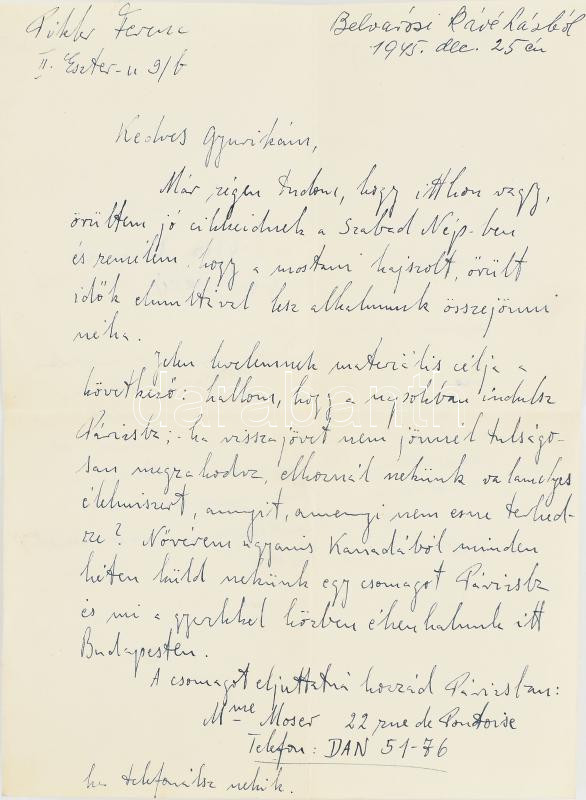 Pikler Ferenc
II. Eszter-u 9/b
Belvárosi Kávéházból
1945. dec. 25 én
Kedves Gyurikám,
Már régen tudom, hogy itthon vagy,
örültem jó cikkeidnek a Szabad Nép-ben
és remélem, hogy a mostani hajszolt, őrült
idők elmultával lesz alkalmunk összejönni
néha.
Jelen levelemnek materiális célja a
következő: hallom, hogy a napokban indulsz
Párizsba; ha visszajövet nem jönnél tulságo-
san megrakodva, elhoznál nekünk valamelyes
élelmiszert, annyit, amennyi nem esne terhed-
re? Nővérem ugyanis Kanadából minden
héten küld nekünk egy csomagot Párizsba
és mi a gyerekkel közben éhenhalunk itt
Budapesten.
A csomagot eljuttatná hozzád Párizsban:
Mme Moser 22 rue de Pontoise
Telefon: DAN 51-76
ha telefonálsz nekik.
darabanth